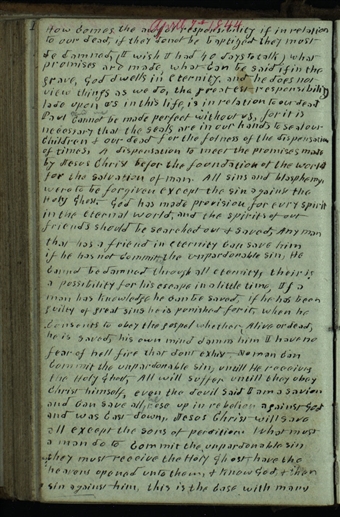 April 7th 1844
How Comes the responsibility if in relation
to our dead, if they donot be baptized they must
be damned, I wish I had 40 days to talk, what
promises are made, what can be said if in the
grave, God dwells in Eternity, and he does not
view things as we do, the greatest responsibility
lade upon us in this life, is in relation to our dead
Paul cannot be made perfect without us, for it is
necessary that the seals are in our hands to seal our
Children & our dead for the fulness of the dispensation
of times A dispensation to meet the promises made
by Jesus Christ befor the foundation of the world
for the salvation of man. All sins and blasphemy
were to be forgiven except the sin against the
Holy Ghost. God has made provision for evry spirit
in the eternal world, and the spirits of our
friends should be searched out & saved, Any man
that has a friend in eternity can save him
if he has not Commit the unpardonable sin, He
cannot be damned through all eternity, their is
a possibility for his escape in a little time, If a
man has knowledge he can be saved, if he has been
guilty of great sins he is punished for it, when he
Consents to obey the gospel whether, Alive or dead,
he is saved, his own mind damns him I have no
fear of hell fire that dont exhist No man can
Commit the unpardonable sin, untill He receives
the Holy Ghost, All will suffer untill they obey
Christ himself, even the devil said I am a savior
and can save all, rose up in rebelion against God
and was Cast down, Jesus Christ will save
all except the sons of perdition What must
a man do to Commit the unpardonable sin
they must receive the Holy Ghost, have the
heavens opened unto them, & know God, & then
sin against him, this is the Case with many